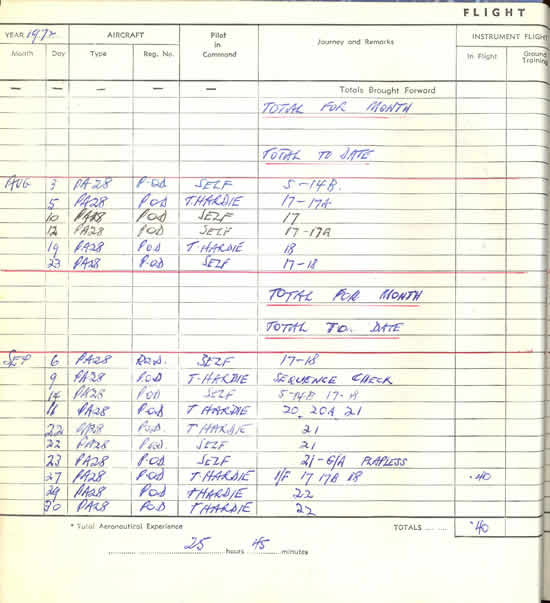 FLIGHT
YEAR 1972 AIRCRAFT Pilot in Command Journey and Remarks INSTRUMENT FLIGH
Month Day Type Reg. No. In Flight Ground Training
— — — — — Totals Brought Forward
TOTAL FOR MONTH
TOTAL TO DATE
AUG 3 PA28 POD SELF 5-14B.
5 PA28 POD T HARDIE 17-17A
10 PA28 POD SELF 17
12 PA28 POD SELF 17-17A
19 PA28 POD T HARDIE 18
23 PA28 POD SELF 17-18
TOTAL FOR MONTH
TOTAL TO DATE
SEP 6 PA28 POD. SELF 17-18
9 PA28 POD T-HARDIE SEQUENCE CHECK
14 PA28 POD SELF 5-14B 17-18
POD T HARDIE 20, 20A 21
22 POD. T HARDIE 21
22 PA28 POD. SELF 21
23 PA28 POD SELF 21- FLAPLESS
27 PA28 POD T HARDIE I/F 17 18 .40
29 PA28 POD T HARDIE 22
30 PA28 POD T HARDIE 22
* Total Aeronautical Experience TOTALS .40
25 hours 45 minutes